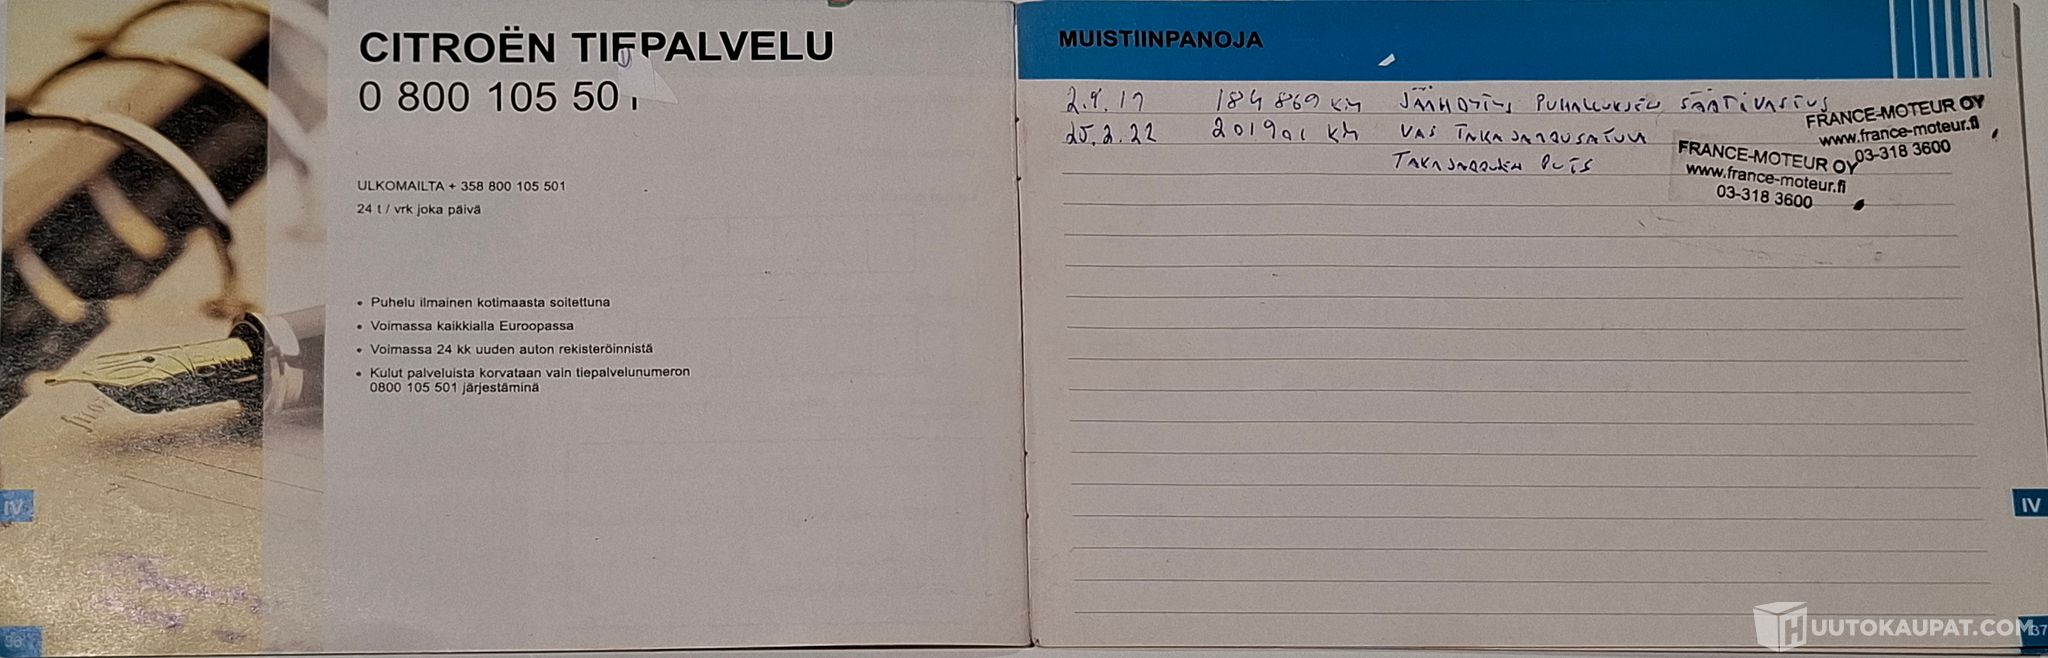 CITROËN TIEPALVELU
0 800 105 501
ULKOMAILTA + 358 800 105 501
24 t / vrk joka päivä
• Puhelu ilmainen kotimaasta soitettuna
• Voimassa kaikkialla Euroopassa
• Voimassa 24 kk uuden auton rekisteröinnistä
• Kulut palveluista korvataan vain tiepalvelunumeron
0800 105 501 järjestäminä
IV
36
MUISTIINPANOJA
184 869 KM JÄÄHDYTYS PUHALLUKSEN SÄÄTÖVASTUS
25.2.22 201901 KM VAS TAKAJARRUSATULA
TAKAJARRUJEN
FRANCE-MOTEUR OY
www.france-moteur.fi
03-318 3600
FRANCE-MOTEUR OY
www.france-moteur.fi
03-318 3600
IV
37
HUUTOKAUPAT.COM